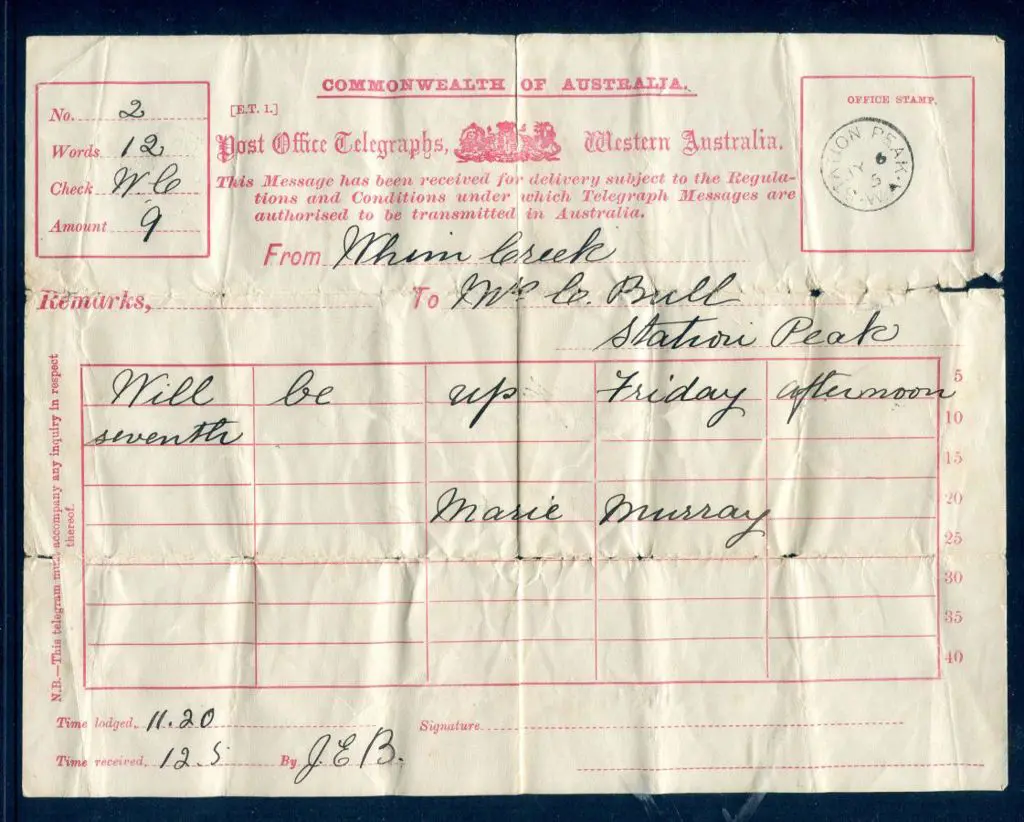 COMMONWEALTH OF AUSTRALIA.
No. 2
Words 12
Check W.C
Amount 9
[E.T. 1.]
Post Office Telegraphs, Western Australia.
This Message has been received for delivery subject to the Regula-
tions and Conditions under which Telegraph Messages are
authorised to be transmitted in Australia.
OFFICE STAMP.
STATION PEAK. W
6
From Whim Creek
Remarks,
To Mrs C. Bull
Station Peak
Will be up Friday afternoon 5
seventh 10
15
Marie Murray 20
25
30
35
40
N.B.—This telegram must accompany any inquiry in respect
thereof.
Time lodged. 11.20
Signature
Time received. 12.5 By J.E.B.